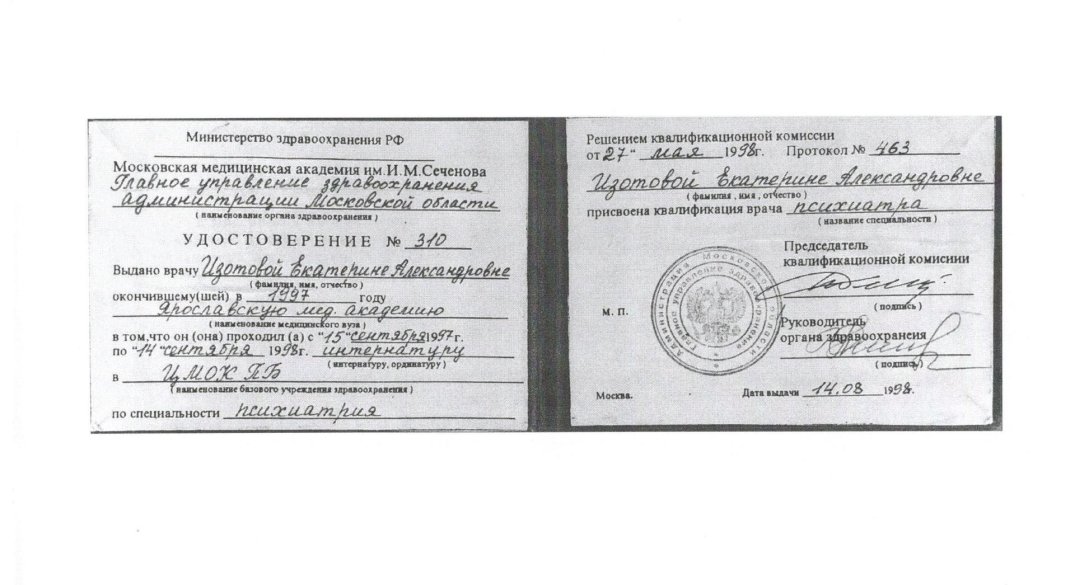 Министерство здравоохранения РФ
Московская медицинская академия им.И.М.Сеченова
Главное управление здравоохранения
администрации Московской области
( наименование органа здравоохранения )
УДОСТОВЕРЕНИЕ № 310
Выдано врачу Изотовой Екатерине Александровне
( фамилия, имя, отчество )
окончившему(шей) в 1997 году
Ярославскую мед. академию
( наименование медицинского вуза )
в том,что он (она) проходил (а) с "15" сентября 1997г.
по "14" сентября 1998г. интернатуру
( интернатуру, ординатуру )
в ЦМОК ПБ
( наименование базового учреждения здравоохранения )
по специальности психиатрия
Решением квалификационной комиссии
от 27" мая 1998г. Протокол № 463
Изотовой Екатерине Александровне
( фамилия , имя , отчество )
присвоена квалификация врача психиатра
( название специальности )
Председатель
квалификационной комисиии
( подпись )
М. П.
Руководитель
органа здравоохрансия
( подпись )
Москва.
Дата выдачи 14.08 1998г.
Администрация Московской области
Главное управление здравоохранения